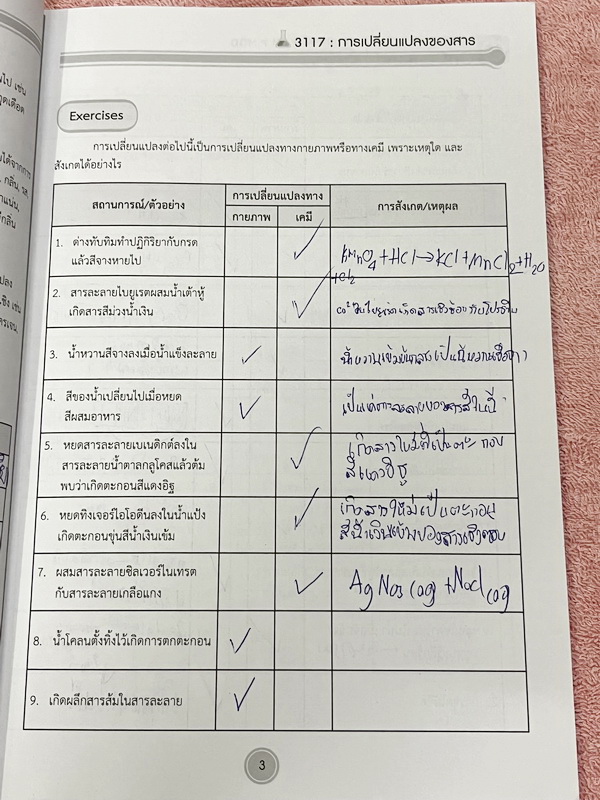 3117 : การเปลี่ยนแปลงของสาร
Exercises
การเปลี่ยนแปลงต่อไปนี้เป็นการเปลี่ยนแปลงทางกายภาพหรือทางเคมี เพราะเหตุใด และ
สังเกตได้อย่างไร
สถานการณ์/ตัวอย่าง
การเปลี่ยนแปลงทาง
กายภาพ
เคมี
การสังเกต/เหตุผล
1. ด่างทับทิมทำปฏิกิริยากับกรด
แล้วสีจางหายไป
KMnO4 + HCl → KCl + MnCl2 + H2O
+Cl2
2. สารละลายไบยูเรตผสมน้ำเต้าหู้
เกิดสารสีม่วงน้ำเงิน
3. น้ำหวานสีจางลงเมื่อน้ำแข็งละลาย
4. สีของน้ำเปลี่ยนไปเมื่อหยด
สีผสมอาหาร
5. หยดสารละลายเบเนดิกต์ลงใน
สารละลายน้ำตาลกลูโคสแล้วต้ม
พบว่าเกิดตะกอนสีแดงอิฐ
เกิดสารใหม่ที่เป็นตะกอน
6. หยดทิงเจอร์ไอโอดีนลงในน้ำแป้ง
เกิดตะกอนขุ่นสีน้ำเงินเข้ม
เกิดสารใหม่เป็นตะกอน
สีน้ำเงินเข้มของสารเชิงซ้อน
7. ผสมสารละลายซิลเวอร์ไนเทรต
กับสารละลายเกลือแกง
AgNO3 (aq) + NaCl (aq)
8. น้ำโคลนตั้งทิ้งไว้เกิดการตกตะกอน
9. เกิดผลึกสารส้มในสารละลาย
3